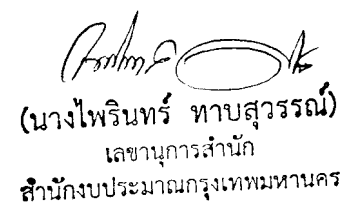 (นางไพรินทร์ ทาบสุวรรณ์)
เลขานุการสำนัก
สำนักงบประมาณกรุงเทพมหานคร